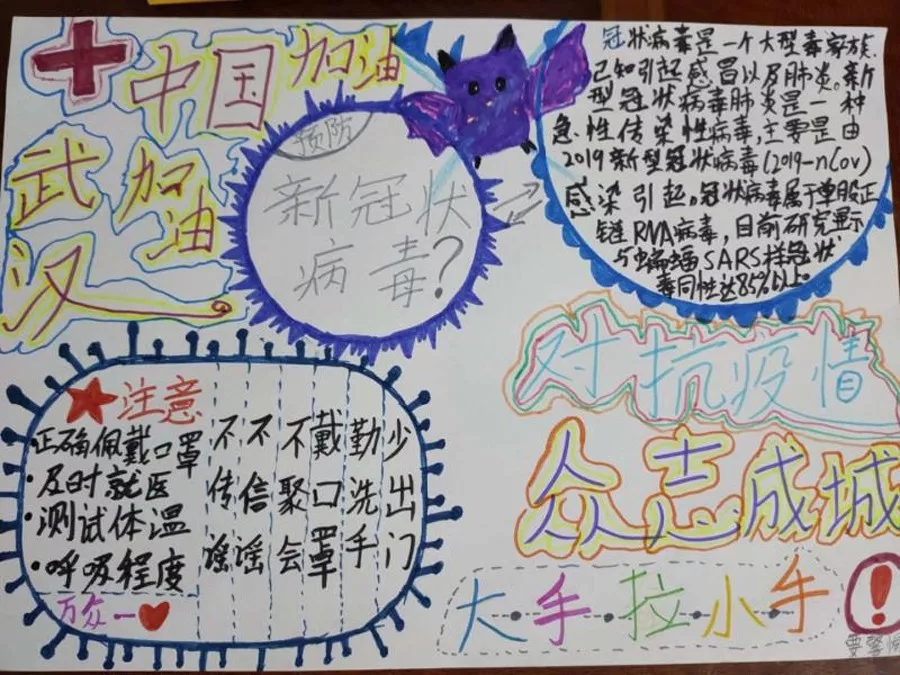 中国加油
武汉加油
预防
新冠状
病毒?
冠状病毒是一个大型毒家族.
已知引起感冒以及肺炎。新
型冠状病毒肺炎是一种
急性传染性病毒,主要是由
2019新型冠状病毒(2019-nCov)
感染引起。冠状病毒属于单股正
链RNA病毒,目前研究显示
与蝙蝠SARS样冠状
毒同性达85%以上。
注意
正确佩戴口罩
·及时就医
·测试体温
·呼吸程度
万众一
不传谣
不信谣
不聚会
戴口罩
勤洗手
少出门
对抗疫情
众志成城
大·手·拉·小·手
!
要警惕